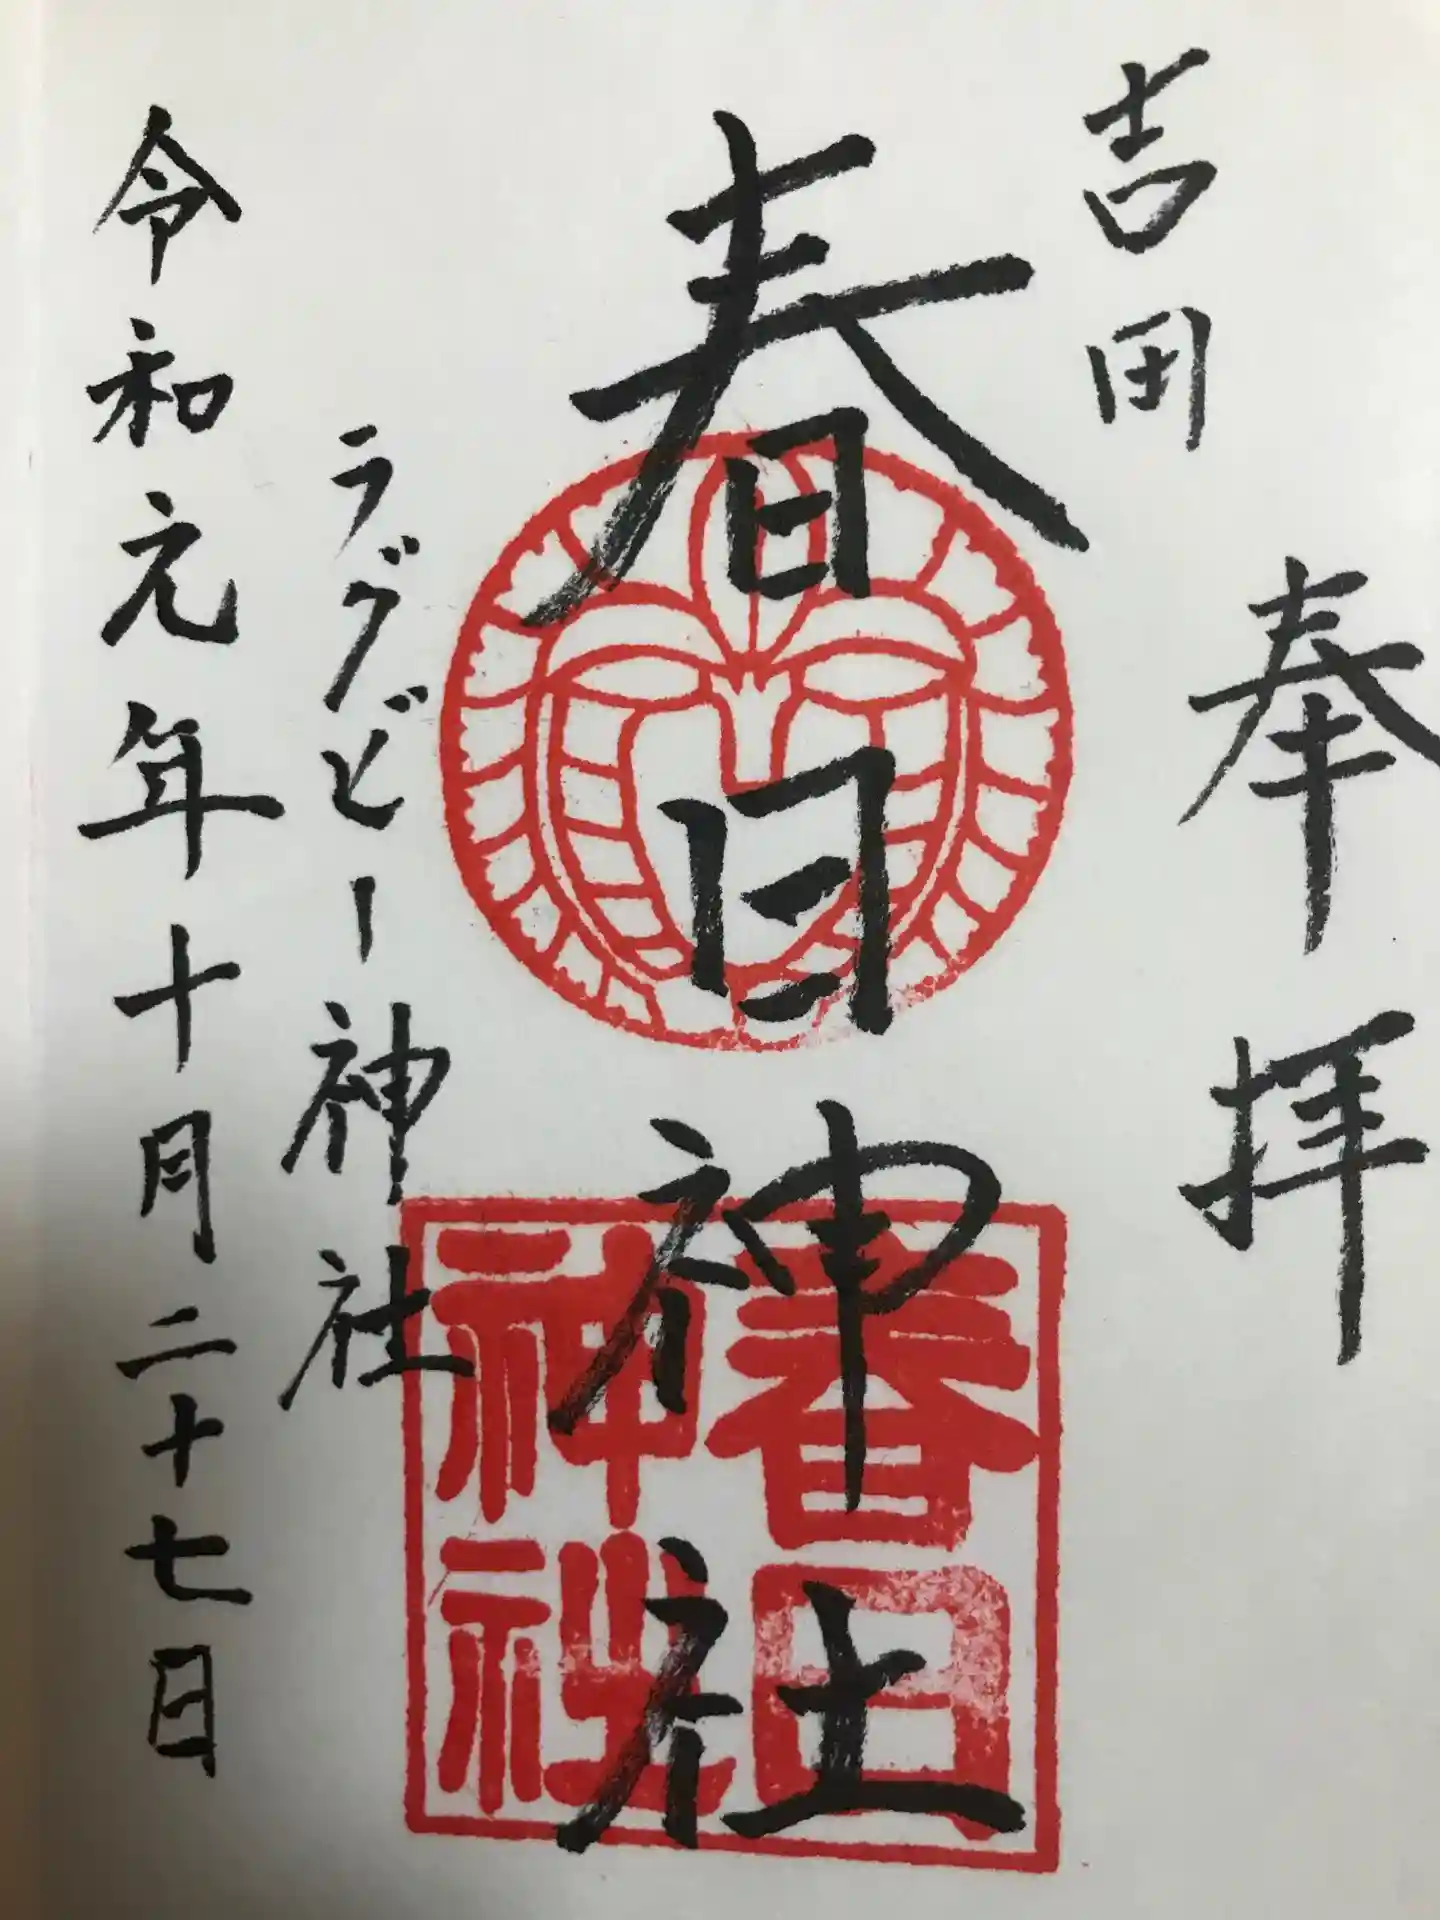 吉田
奉拝
春日神社
春日
神社
ラグビー神社
令和元年十月二十七日